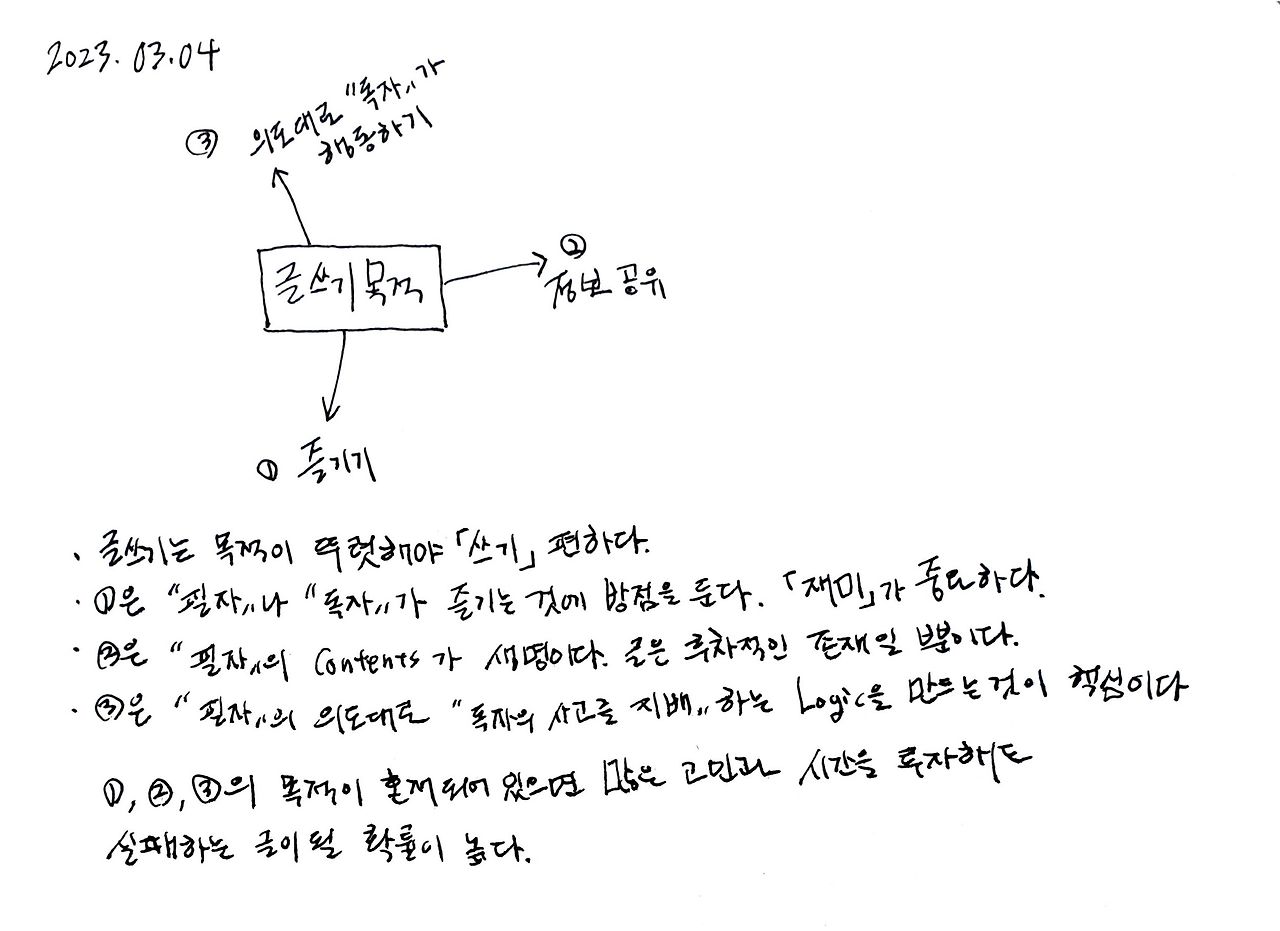 2023. 03. 04
③ 의도대로 "독자"가
행동하기
글쓰기 목적
②
정보 공유
① 즐기기
· 글쓰기는 목적이 뚜렷해야 「쓰기」 편하다.
· ①은 "필자"나 "독자"가 즐기는 것에 방점을 둔다. 「재미」가 중요하다.
· ②은 "필자"의 Contents가 생명이다. 글은 후차적인 존재일 뿐이다.
· ③은 "필자"의 의도대로 "독자의 사고를 지배"하는 Logic을 만드는 것이 핵심이다
①, ②, ③의 목적이 혼재되어 있으면 많은 고민과 시간을 투자해도
실패하는 글이 될 확률이 높다.